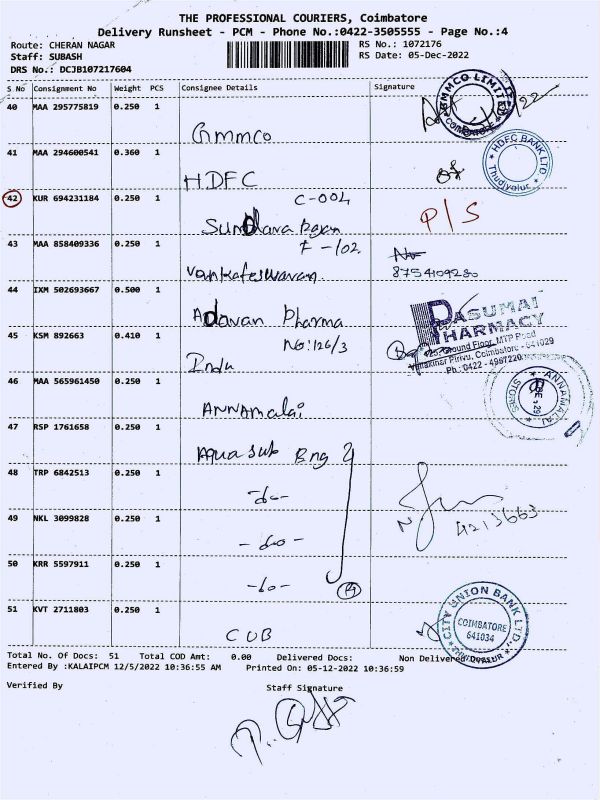 THE PROFESSIONAL COURIERS, Coimbatore
Delivery Runsheet - PCM - Phone No.:0422-3505555 - Page No.:4
Route: CHERAN NAGAR
RS No.: 1072176
Staff: SUBASH
RS Date: 05-Dec-2022
DRS No.: DCJB107217604
S No Consignment No Weight PCS Consignee Details Signature
40 MAA 295775819 0.250 1
Gmmco
GMMCO LIMITED
COIMBATORE
41 MAA 294600541 0.360 1
HDFC
HDFC BANK LTD
Thudiyalur
42 KUR 694231184 0.250 1
C-004
P/S
43 MAA 858409336 0.250 1
F-102
Vankateswaran
8754109280
44 IXM 502693667 0.500 1
Adavan Pharma
PASUMAI
PHARMACY
Ground Floor, MTP Road
Pirivu, Coimbatore - 641029
Ph: 0422 - 4987220
45 KSM 892663 0.410 1
No:126/3
Indu
46 MAA 565961450 0.250 1
ANNAMalai
ANNAMALAI
STORES
47 RSP 1761658 0.250 1
Aqua sub Eng
48 TRP 6842513 0.250 1
-do-
49 NKL 3099828 0.250 1
-do-
4213663
50 KRR 5597911 0.250 1
-do-
51 KVT 2711803 0.250 1
CUB
CITY UNION BANK LTD.,
COIMBATORE
641034
THUDIYALUR
Total No. Of Docs: 51 Total COD Amt: 0.00 Delivered Docs: Non Delivered
Entered By :KALAIPCM 12/5/2022 10:36:55 AM Printed On: 05-12-2022 10:36:59
Verified By
Staff Signature